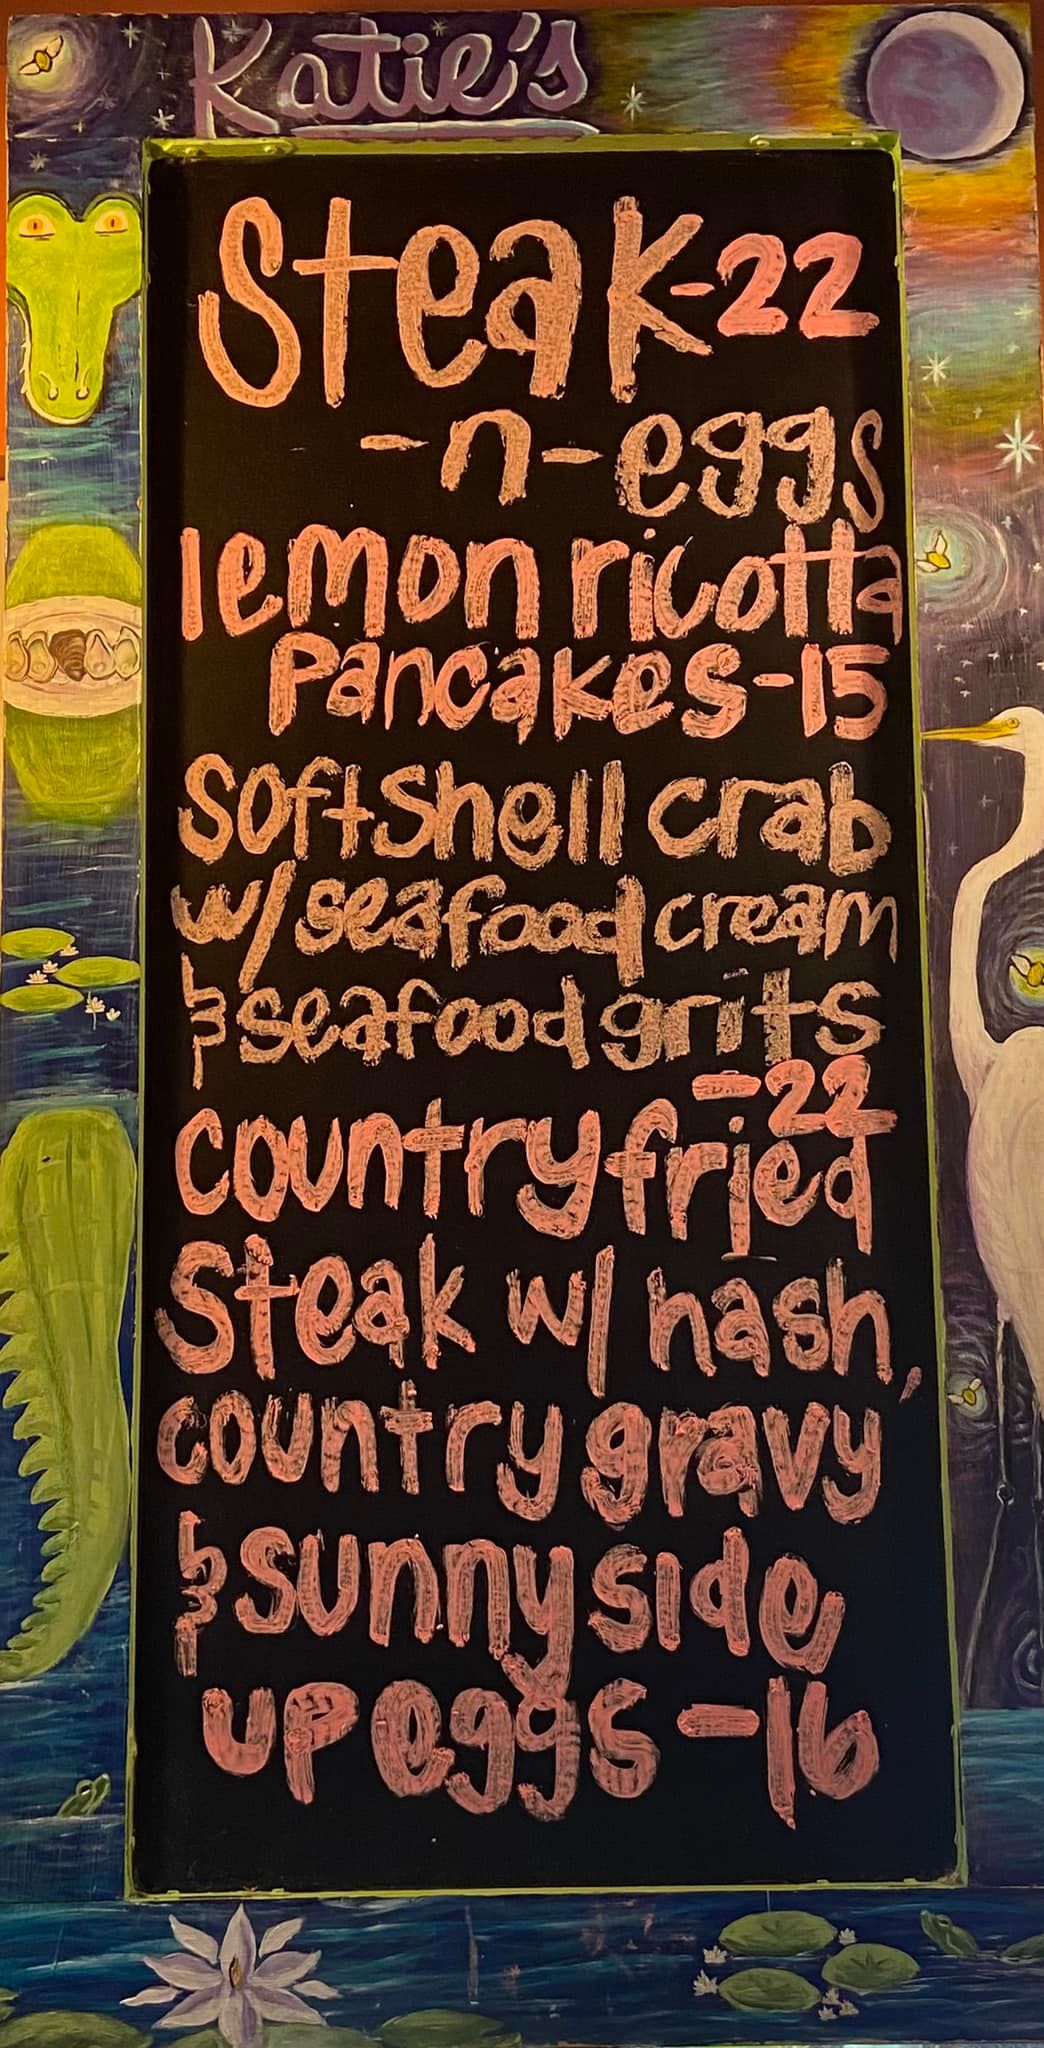 Katie's
Steak-22
-n-eggs
lemon ricotta
Pancakes-15
Softshell crab
w/seafood cream
& seafood grits
-22
country fried
Steak w/ hash,
country gravy
& sunny side
up eggs -16